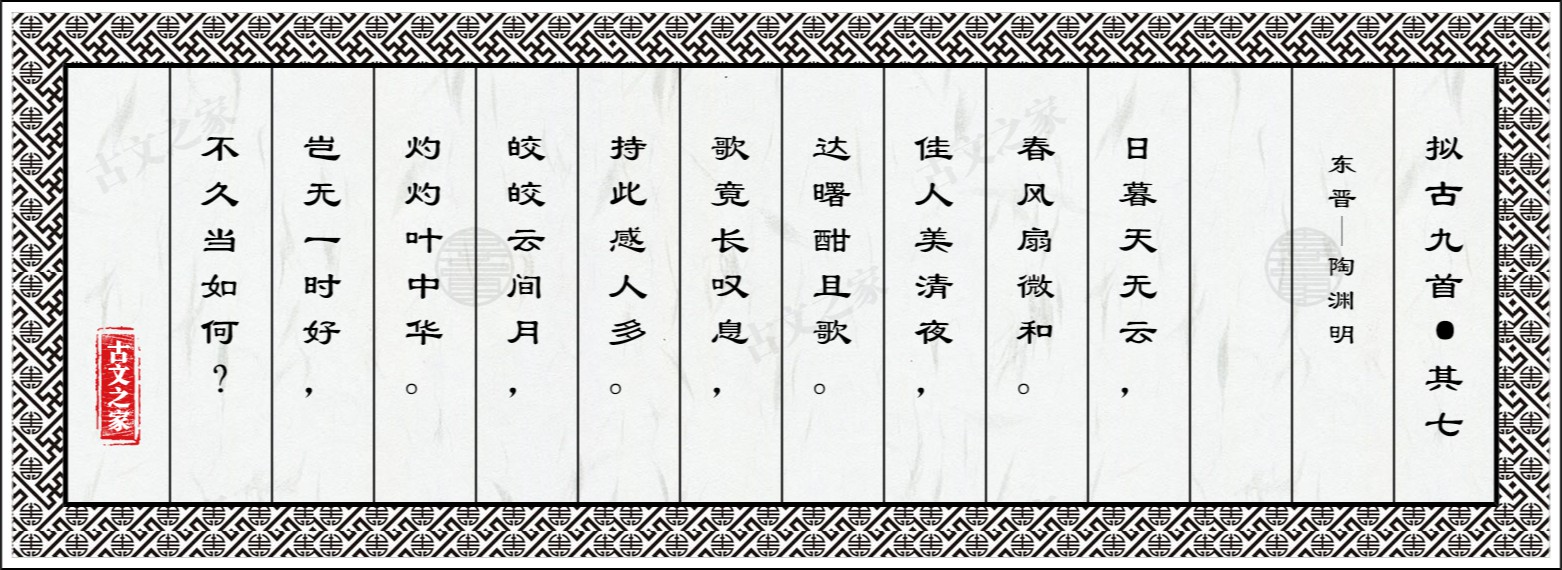 拟古九首●其七
东晋—陶渊明
日暮天无云，
春风扇微和。
佳人美清夜，
达曙酣且歌。
歌竟长叹息，
持此感人多。
皎皎云间月，
灼灼叶中华。
岂无一时好，
不久当如何？
古文之家
古文之家
古文之家
古文之家